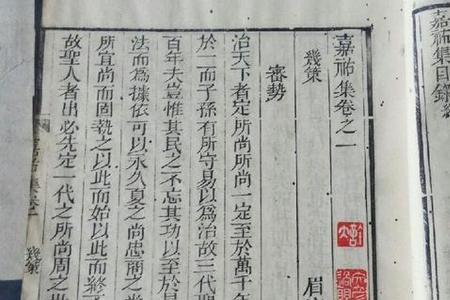 嘉祐集目錄
嘉祐集卷之一
眉
幾策
審勢
治天下者定所尚所尚一定至於萬千年
於一而子孫有所守易以為治故三代聖
百年夫豈惟其民之不忘其功以至於
法而為據依可以永久夏之尚忠商之
所宜尚而固執之以此而始以此而終
故聖人者出必先定一代之所尚周之世
幾策